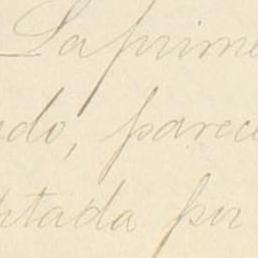 La prime
ndo, parece
ptada por